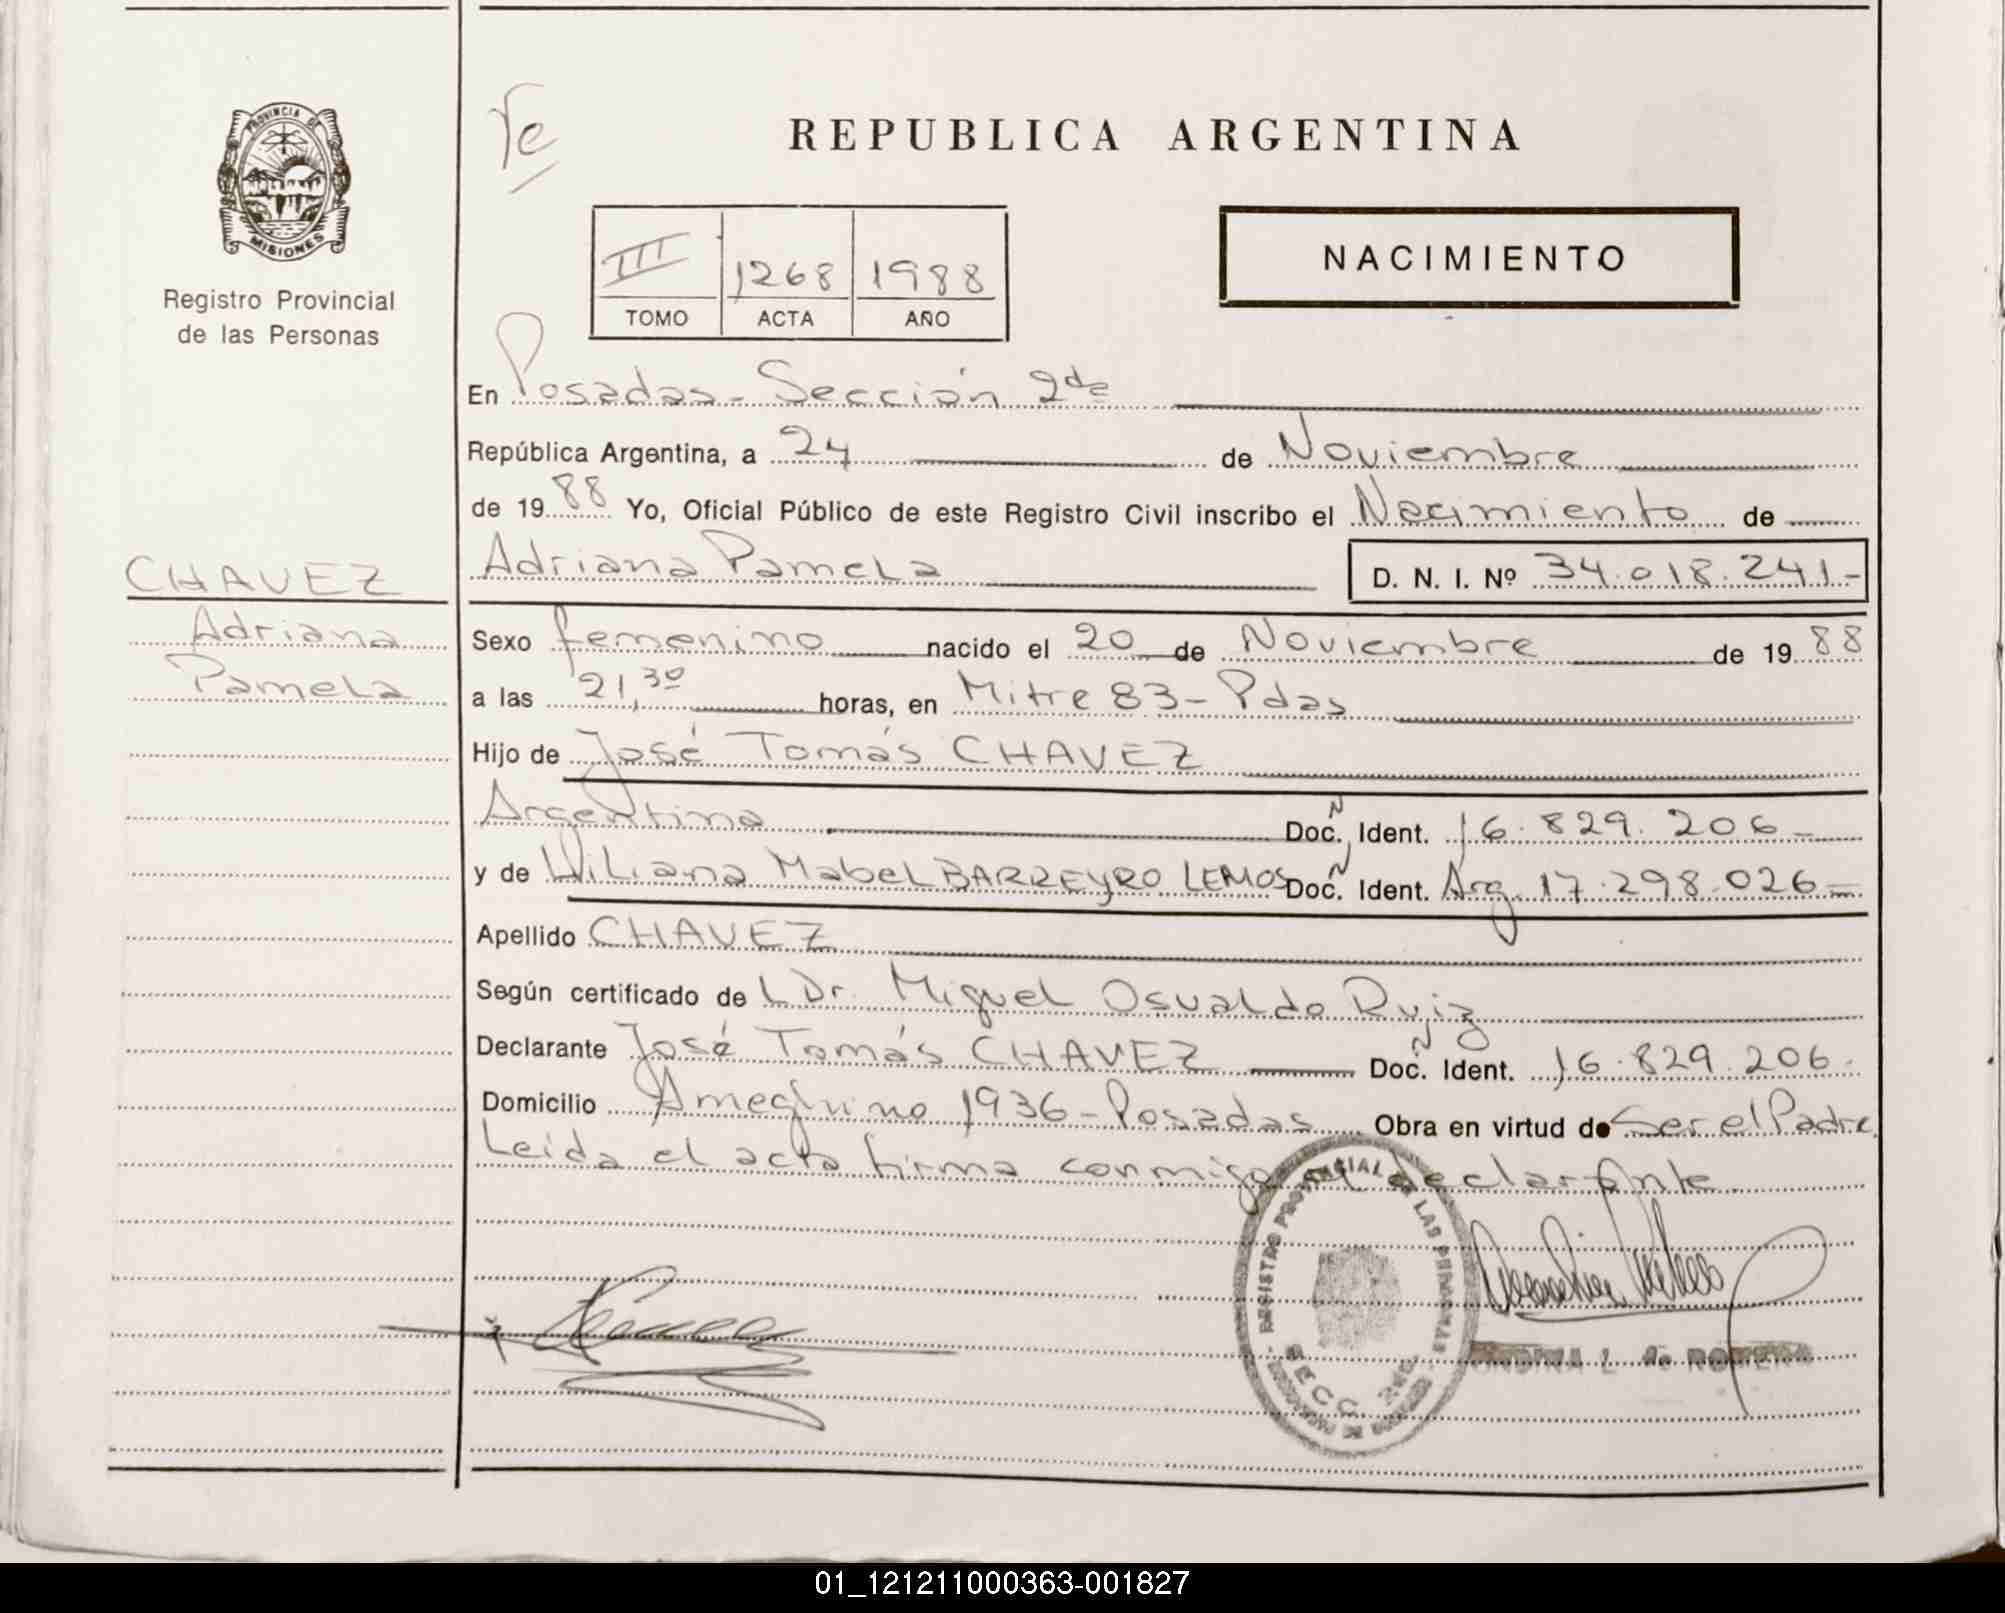 PROVINCIA DE
MISIONES
Registro Provincial
de las Personas
CHAVEZ
Adriana
Pamela
REPUBLICA ARGENTINA
NACIMIENTO
III 1268 1988
TOMO ACTA AÑO
En Posadas - Sección 2da
República Argentina, a 24 de Noviembre
de 1988 Yo, Oficial Público de este Registro Civil inscribo el Nacimiento de
Adriana Pamela D. N. I. Nº 34.018.241-
Sexo femenino nacido el 20 de Noviembre de 1988
a las 21,30 horas, en Mitre 83 - Pdas
Hijo de José Tomás CHAVEZ
Argentina Doc. Ident. Nº 16.829.206-
y de Liliana Mabel BARREYRO LEMOS Doc. Ident. Nº Arg. 17.298.026-
Apellido CHAVEZ
Según certificado de L Dr. Miguel Osvaldo Ruiz
Declarante José Tomás CHAVEZ Doc. Ident. Nº 16.829.206.
Domicilio Ameghino 1936 - Posadas Obra en virtud de Ser el Padre.
Leida el acta firma conmigo el declarante
REGISTRO PROVINCIAL DE LAS PERSONAS
SECC. 2da.
ONDINA L. de ROMERO
01_121211000363-001827